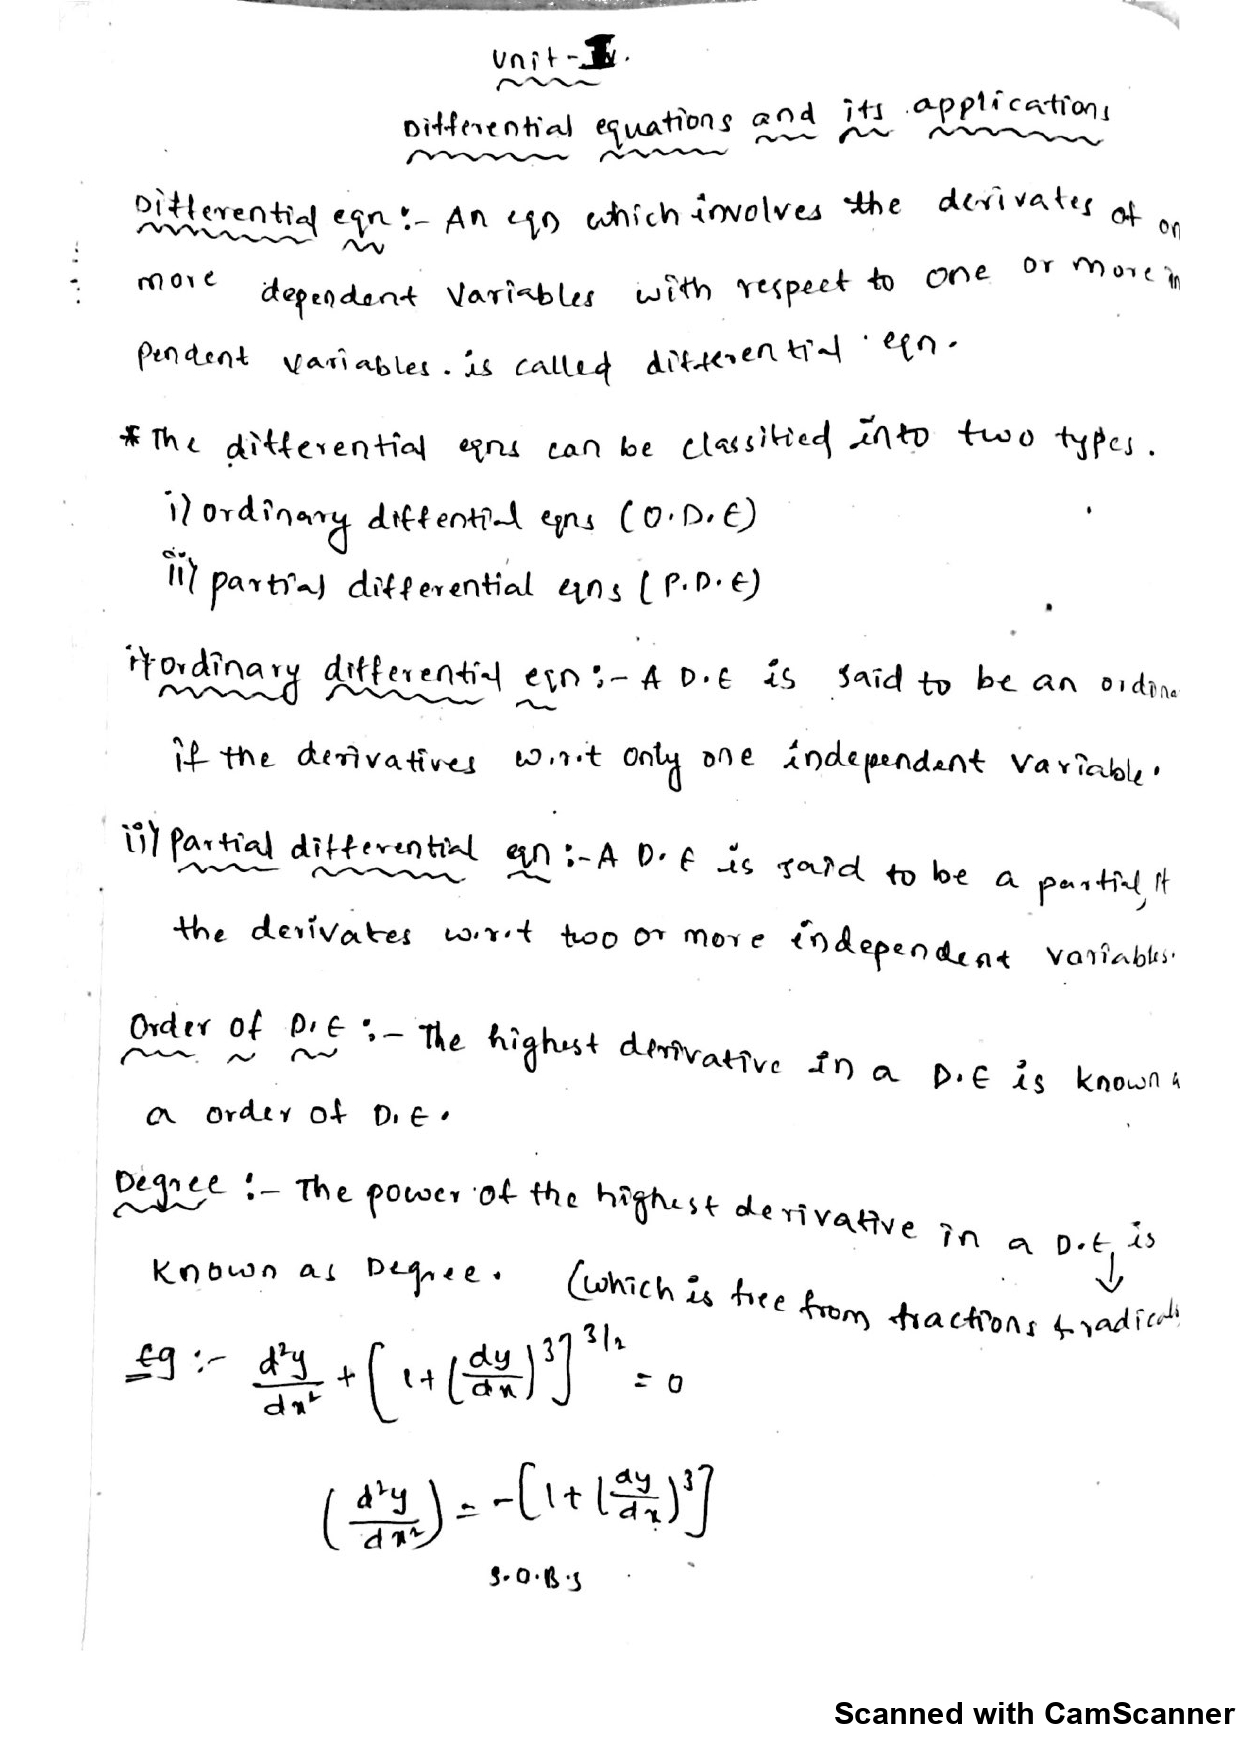 Unit-I.
Differential equations and its applications
Differential eqn :- An eqn which involves the derivates of on
more dependent variables with respect to one or more in
pendent variables. is called differential eqn.
* The differential eqns can be classified into two types.
i) ordinary diffential eqns (O.D.E)
ii) partial differential eqns (P.D.E)
i) ordinary differential eqn :- A D.E is said to be an ordina
if the derivatives w.r.t only one independent variable.
ii) Partial differential eqn :- A D.E is said to be a partial, if
the derivates w.r.t two or more independent variables.
Order of D.E :- The highest derivative in a D.E is known a
a order of D.E.
Degree :- The power of the highest derivative in a D.E, is
known as Degree. (which is free from fractions & radicals
Eg :- d²y/dx² + [1+(dy/dx)³]^3/2 = 0
(d²y/dx²) = -[1+(dy/dx)³]
S.O.B.S
Scanned with CamScanner